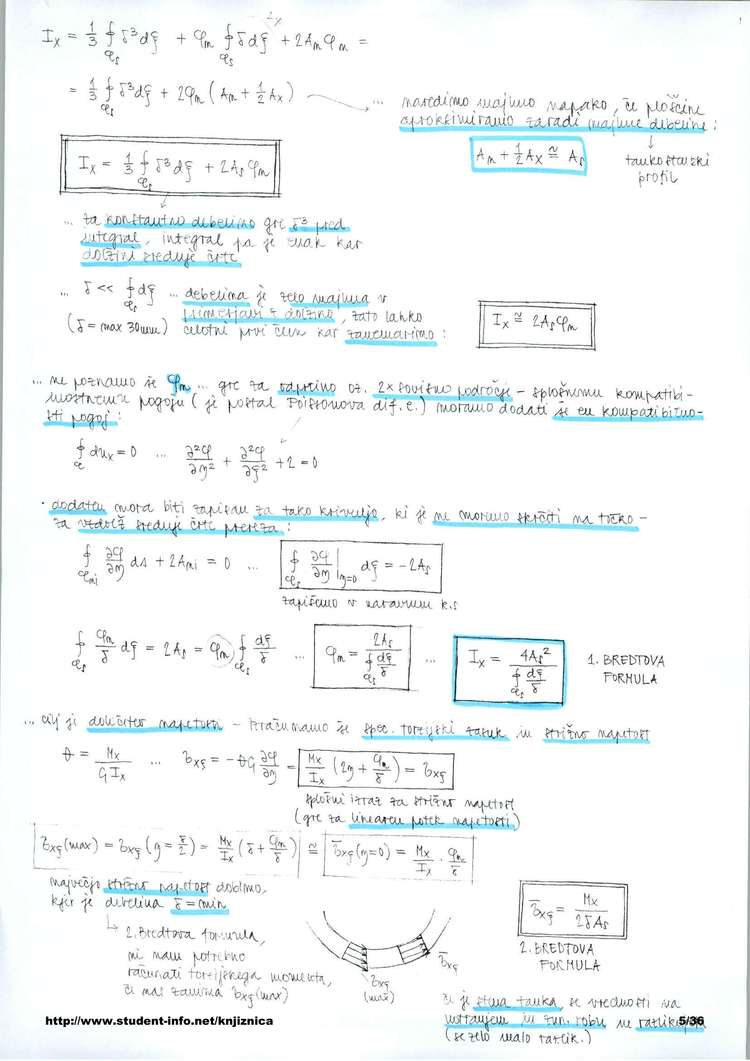 I_x = 1/3 ∮_{φ_s} δ³dξ + φ_m ∮_{φ_s} δdξ + 2A_m φ_m =
= 1/3 ∮_{φ_s} δ³dξ + 2φ_m (A_m + 1/2 A_x)
... naredimo majhno napako, če ploščine
aproksimiramo zaradi majhne debeline:
I_x = 1/3 ∮_{φ_s} δ³dξ + 2A_s φ_m
A_m + 1/2 A_x ≅ A_s
tankostenski
profil
... za konstantno debelino gre δ³ pred
integral, integral pa je enak kar
dolžini srednje črte
... δ << ∮_{φ_s} dξ ... debelina je zelo majhna v
primerjavi z dolžino, zato lahko
(δ = max 30mm) celotni prvi člen kar zanemarimo:
I_x ≅ 2A_s φ_m
... ne poznamo še φ_m ... gre za odprtino oz. 2x sovisno področje - splošnemu kompatibi-
lnostnemu pogoju (je postal Poissonova dif. e.) moramo dodati še en kompatibilno-
sti pogoj:
∮_φ du_x = 0 ... ∂²φ/∂η² + ∂²φ/∂ξ² + 2 = 0
· dodaten mora biti zapisan za tako krivuljo, ki je ne moremo skrčiti na točko -
za vzdolž srednje črte prereza:
∮_{φ_mi} ∂φ/∂η ds + 2A_mi = 0 ... ∮_{φ_s} ∂φ/∂η |_{η=0} dξ = -2A_s
zapišemo v naravnem k.s
∮_{φ_s} φ_m/δ dξ = 2A_s = φ_m ∮_{φ_s} dξ/δ ... φ_m = 2A_s / ∮_{φ_s} dξ/δ ... I_x = 4A_s² / ∮_{φ_s} dξ/δ
1. BREDTOVA
FORMULA
... cilj je določitev napetosti - izračunamo še spec. torzijski zasuk in strižno napetost
ϑ = M_x / G I_x ... τ_xξ = -ϑG ∂φ/∂η = M_x/I_x (2η + φ_m/δ) = τ_xξ
splošni izraz za strižno napetost
(gre za linearen potek napetosti)
τ_xξ(max) = τ_xξ (η = δ/2) = M_x/I_x (δ + φ_m/δ) ≅ τ̄_xξ (η=0) = M_x/I_x · φ_m/δ
največjo strižno napetost dobimo,
kjer je debelina δ = min
τ̄_xξ = M_x / 2δA_s
2. BREDTOVA
FORMULA
2. Bredtova formula,
ni nam potrebno
računati torzijskega momenta,
če nas zanima τ_xξ(max)
τ̄_xξ
τ_xξ
(max)
če je stena tanka, se vrednosti na
notranjem in zun. robu ne razlikujeta
(se zelo malo razlik.)
http://www.student-info.net/knjiznica
5/36